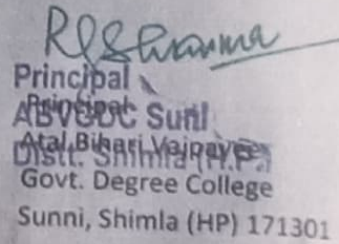 RLSharma
Principal
Principal
ABVGDC Sunl
Atal Bihari Vajpayee
Distt. Shimla (H.P.)
Govt. Degree College
Sunni, Shimla (HP) 171301